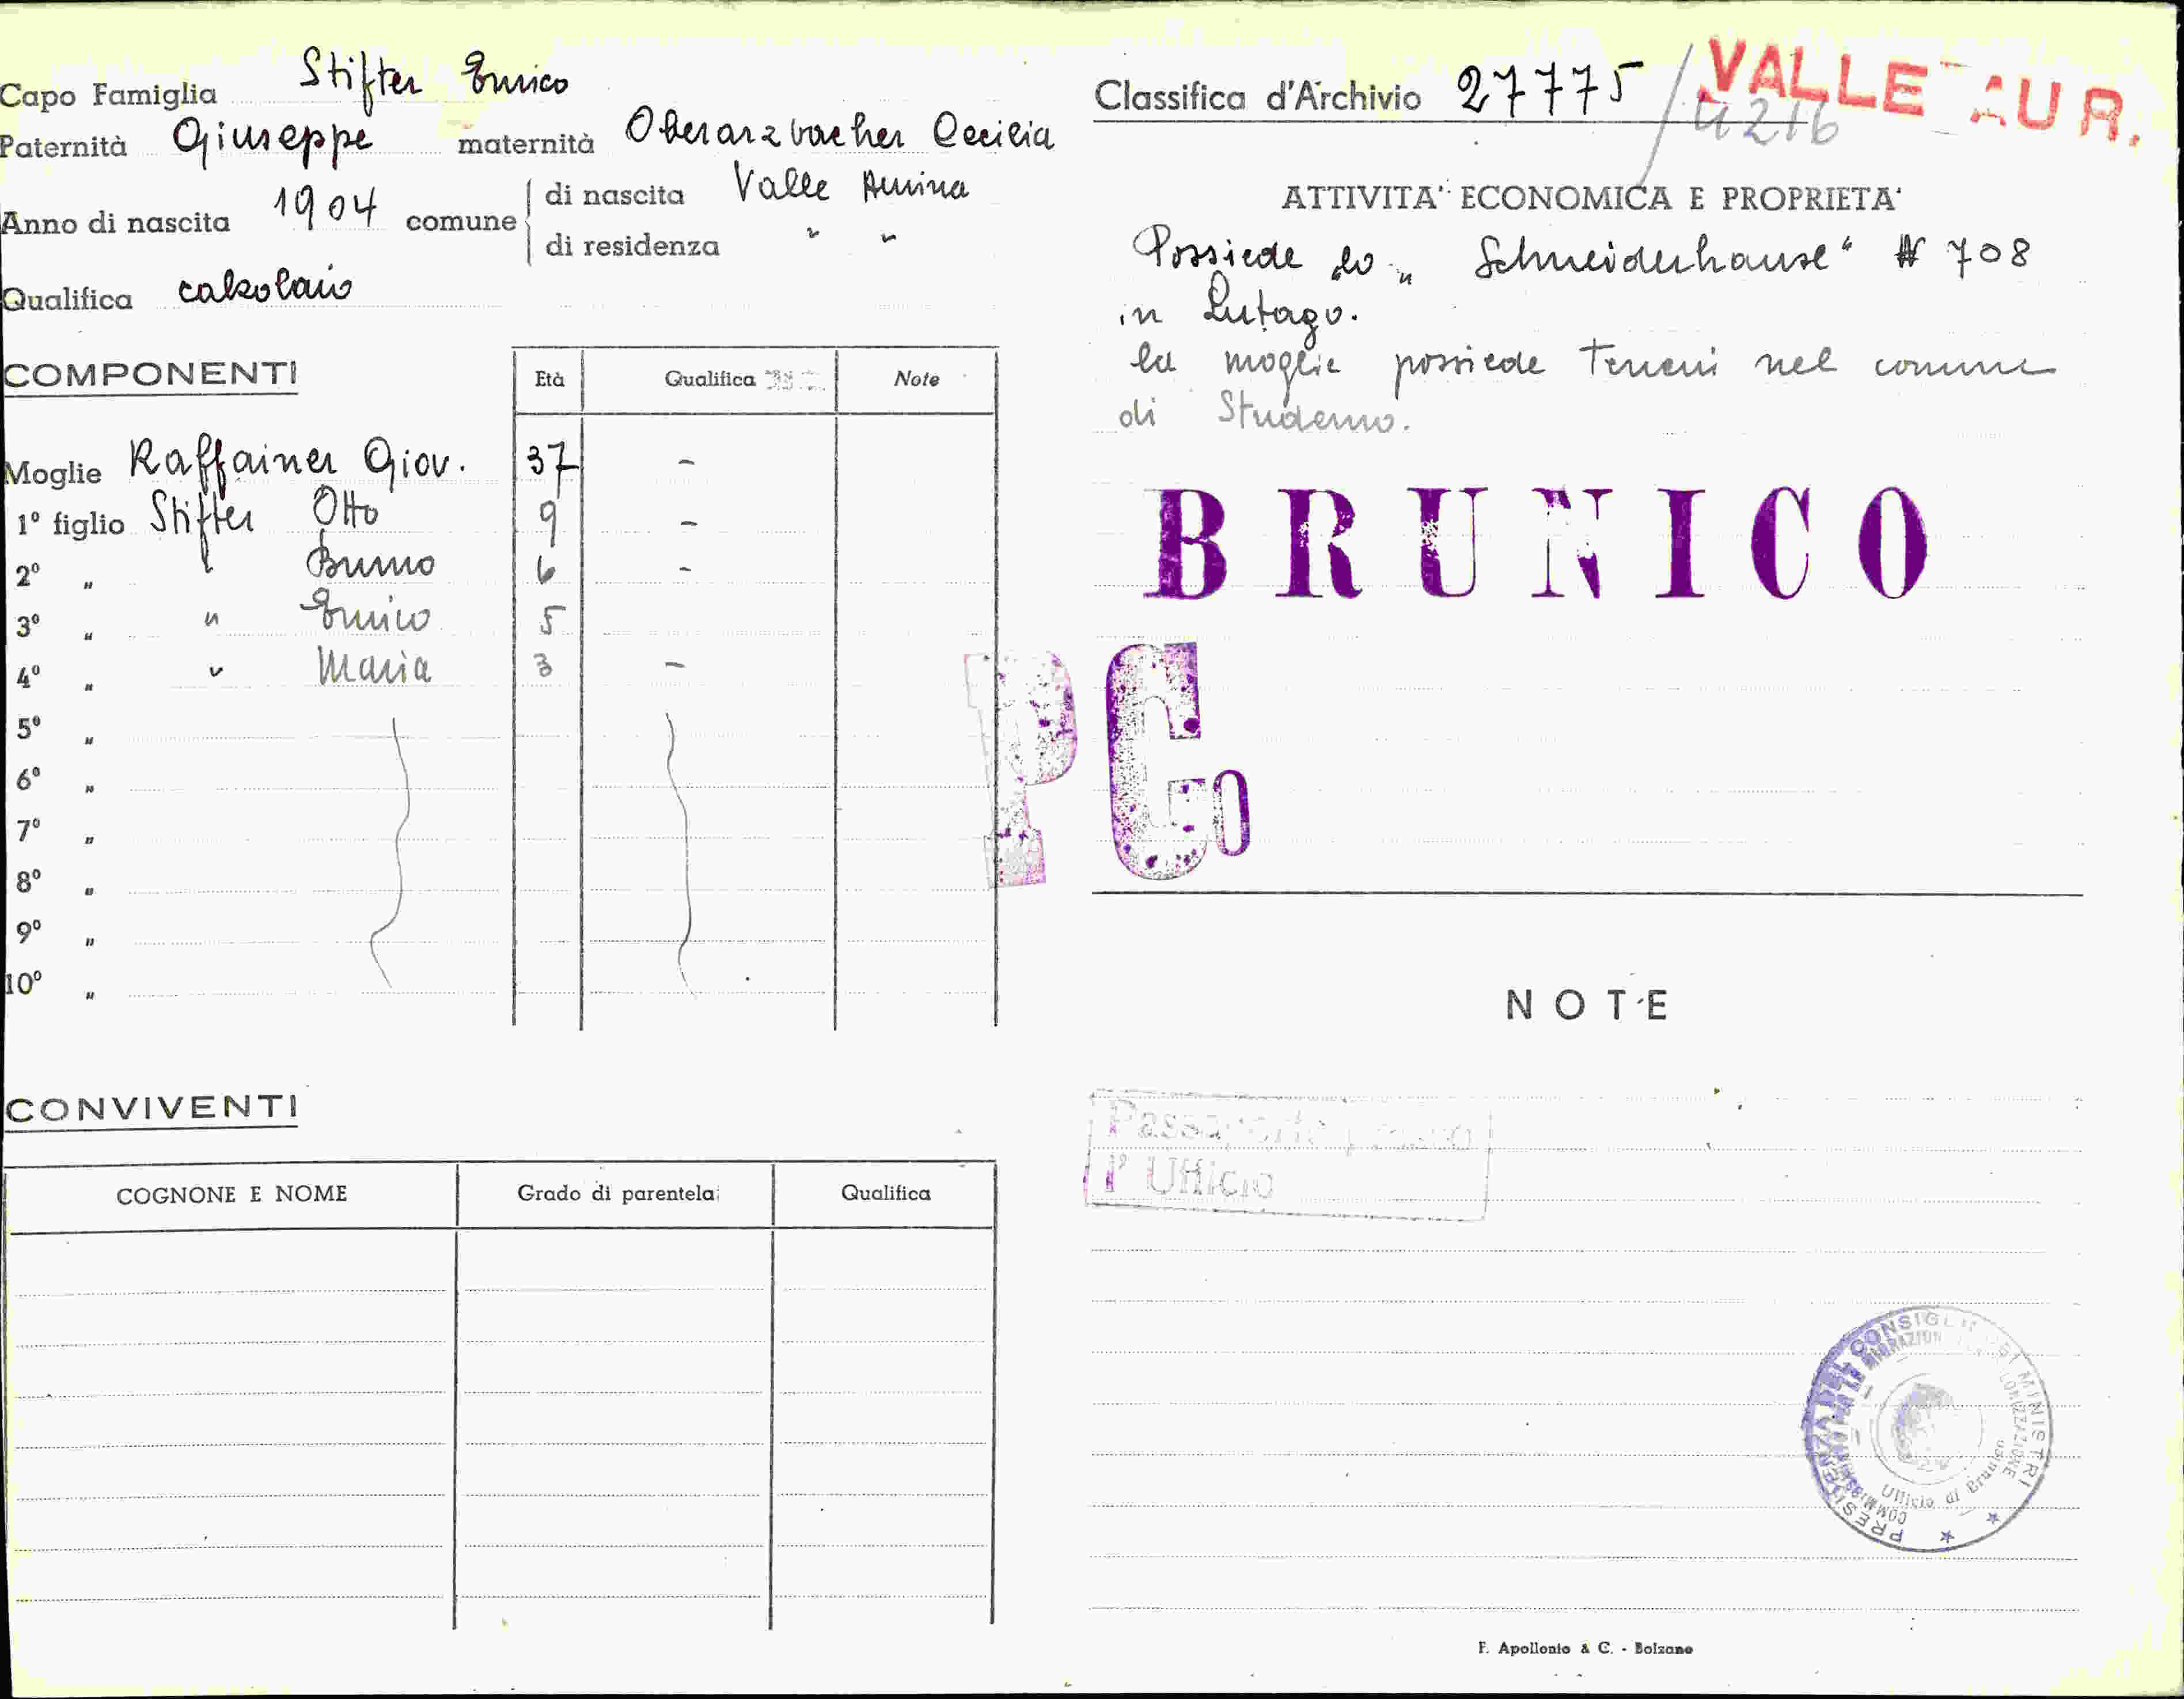 Capo Famiglia Stifter Enrico
Paternità Giuseppe maternità Oberarzbacher Cecilia
Anno di nascita 1904 comune di nascita Valle Aurina
di residenza " "
Qualifica calzolaio
COMPONENTI
Età Qualifica Note
Moglie Raffainer Giov. 37 -
1º figlio Stifter Otto 9 -
2º " " Bruno 6 -
3º " " Enrico 5
4º " " Maria 3 -
5º "
6º "
7º "
8º "
9º "
10º "
CONVIVENTI
COGNONE E NOME Grado di parentela Qualifica
Classifica d'Archivio 27775 / 4216
VALLE AUR.
ATTIVITA' ECONOMICA E PROPRIETA'
Possiede lo "Schneiderhause" N 708
in Lutago.
la moglie possiede terreni nel comune
di Studerno.
BRUNICO
PCo
NOTE
1º Ufficio
PRESIDENZA DEL CONSIGLIO DEI MINISTRI
Ufficio di Brunico
F. Apollonio & C. - Bolzano